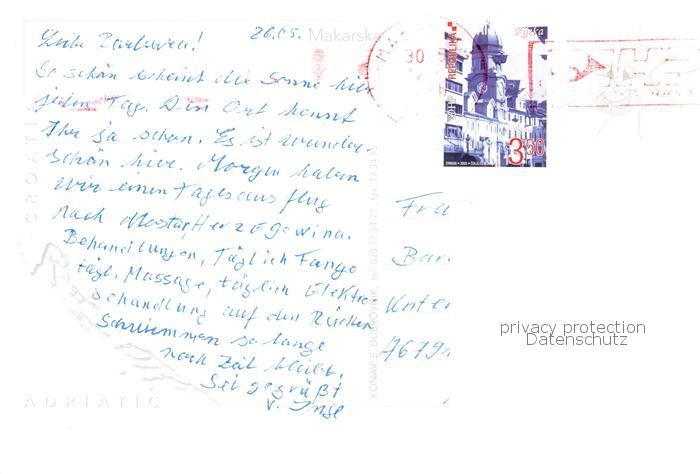 Liebe Barbara!
26.05.
Makarska
So schön scheint die Sonne hier
jeden Tag. Den Ort kennt
Ihr ja schon. Es ist wunder-
schön hier. Morgen haben
wir einen Tagesausflug
nach Mostar, Herzegowina.
Behandlungen, Täglich Fango
tägl. Massage, täglich Elektro
behandlung auf den Rücken
Schwimmen so lange
noch Zeit bleibt.
Sei gegrüßt
v. Inge
30
REPUBLIKA
Rijeka
3.50
CROATIA
ADRIATIC
KONAVLE DUBROVNIK, tel 020 77 34 77, fax
Frau
Bar
Unter
7679
privacy protection
Datenschutz